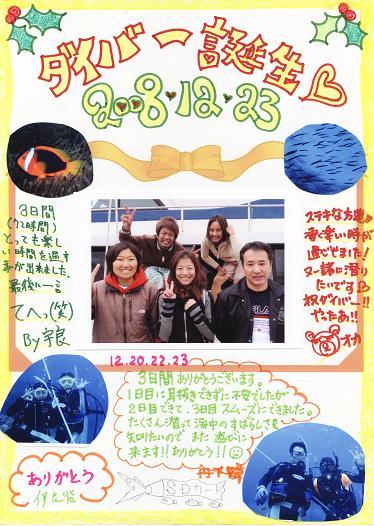 ダイバー誕生
2008・12・23
3日間
(72時間)
とっても楽し
い時間を過す
事が出来ました。
最後に一言
てへっ(笑)
By 宇良
ステキな方達と
凄く楽しい時が
過ごせました!
又一緒に潜り
たいです
祝ダイバー!!
やったぁ!!
オカ
FILA
12.20.22.23
3日間ありがとうございます。
1日目に耳抜きできずに不安でしたが
2日目できて、3日目スムーズにできました。
たくさん潜って海中のすばらしさを
知りたいので また 遊びに
来ます!!ありがとう!!
ありがとう
SDカード